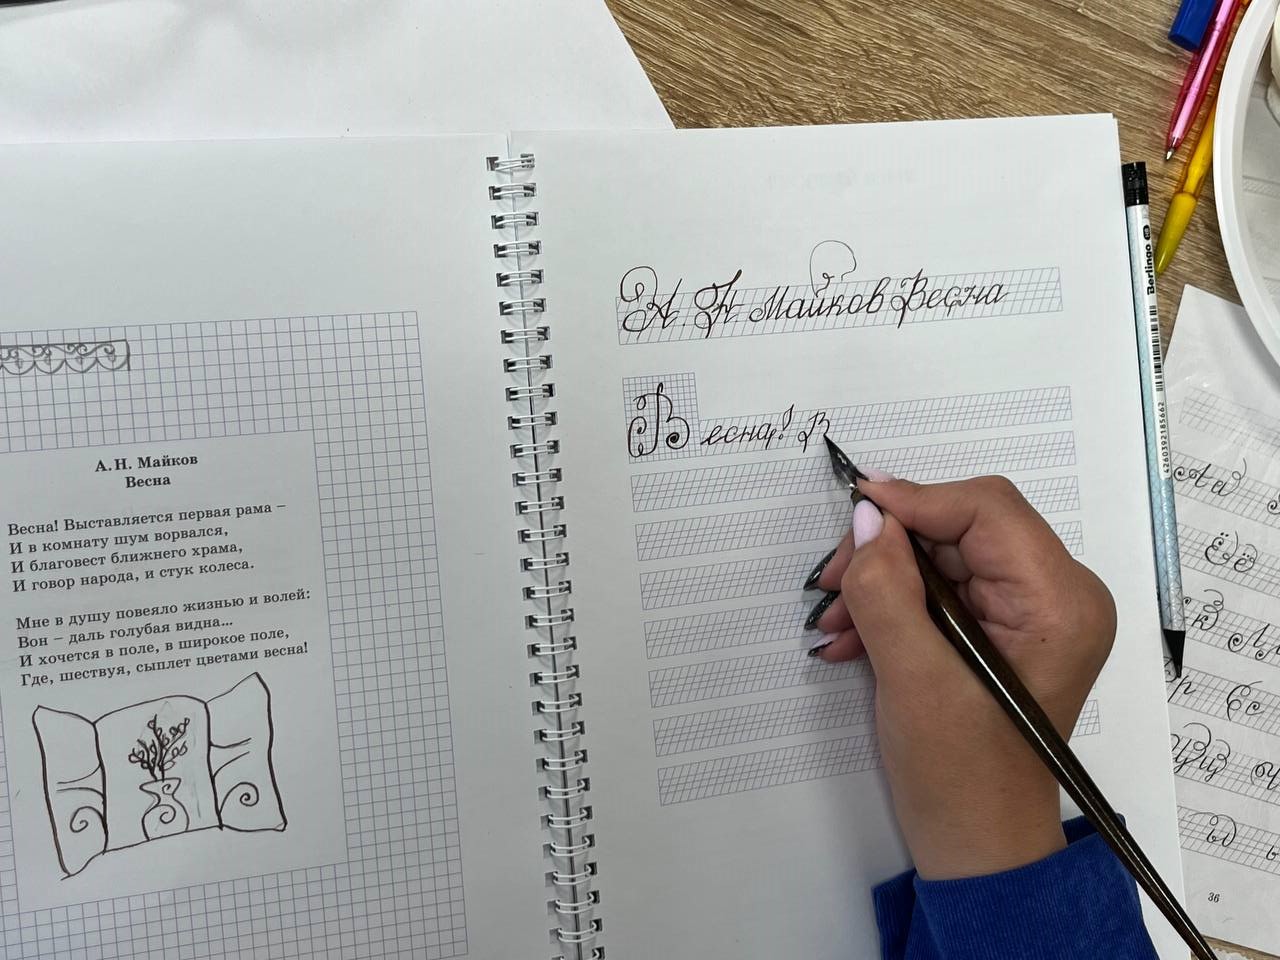 А. Н. Майков
Весна
Весна! Выставляется первая рама –
И в комнату шум ворвался,
И благовест ближнего храма,
И говор народа, и стук колеса.
Мне в душу повеяло жизнью и волей:
Вон – даль голубая видна...
И хочется в поле, в широкое поле,
Где, шествуя, сыплет цветами весна!
А. Н Майков Весна
Весна! В
Berlingo
4260392185662
Ёё
Ее
36